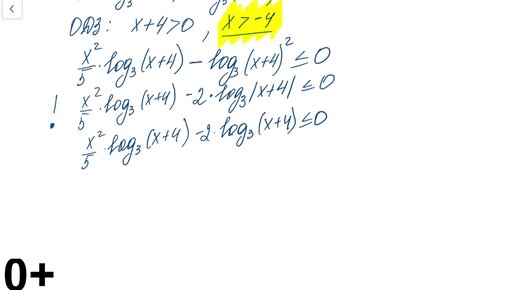 ОДЗ: x+4>0, x>-4
x²/5 · log₃(x+4) - log₃(x+4)² ≤ 0
! x²/5 · log₃(x+4) - 2·log₃|x+4| ≤ 0
x²/5 · log₃(x+4) - 2·log₃(x+4) ≤ 0
0+